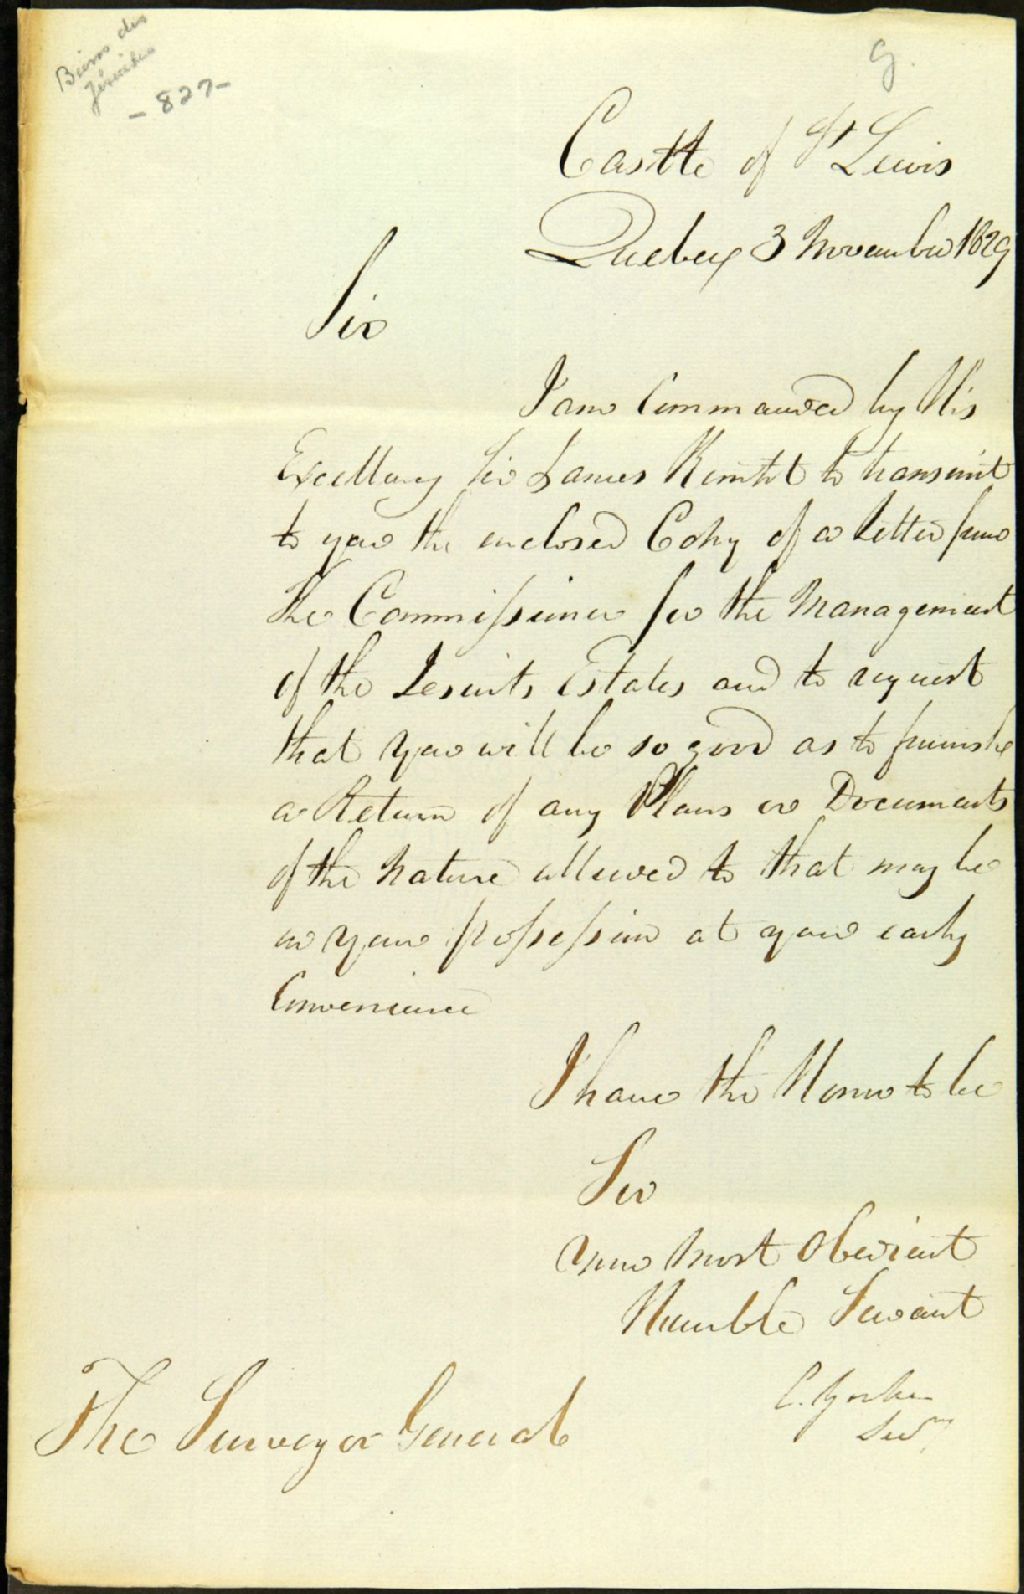 Biens des
Jésuites
- 827 -
G.
Castle of St Lewis
Quebec 3 November 1829
Sir
I am Commanded by His
Excellency Sir James Kempt to transmit
to you the enclosed Copy of a letter from
the Commissioner for the Management
of the Jesuits Estates and to request
that you will be so good as to furnish
a Return of any Plans or Documents
of the Nature allued to that may be
in your possession at your early
Convenience
I have the Honor to be
Sir
Your Most Obedient
Humble Servant
C. Yorke
Secy
The Surveyor General